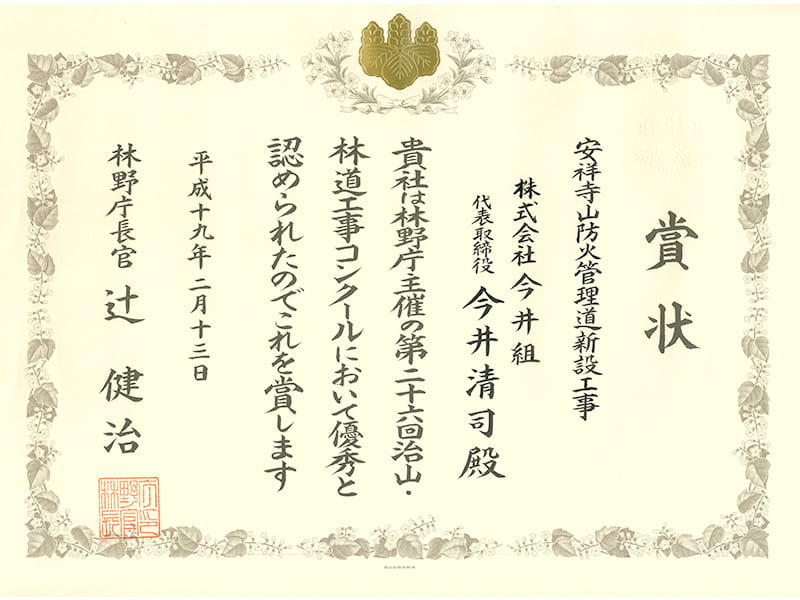 賞状
安祥寺山防火管理道新設工事
株式会社 今井組
代表取締役 今井清司殿
貴社は林野庁主催の第二十六回治山・
林道工事コンクールにおいて優秀と
認められたのでこれを賞します
平成十九年二月十三日
林野庁長官 辻 健治